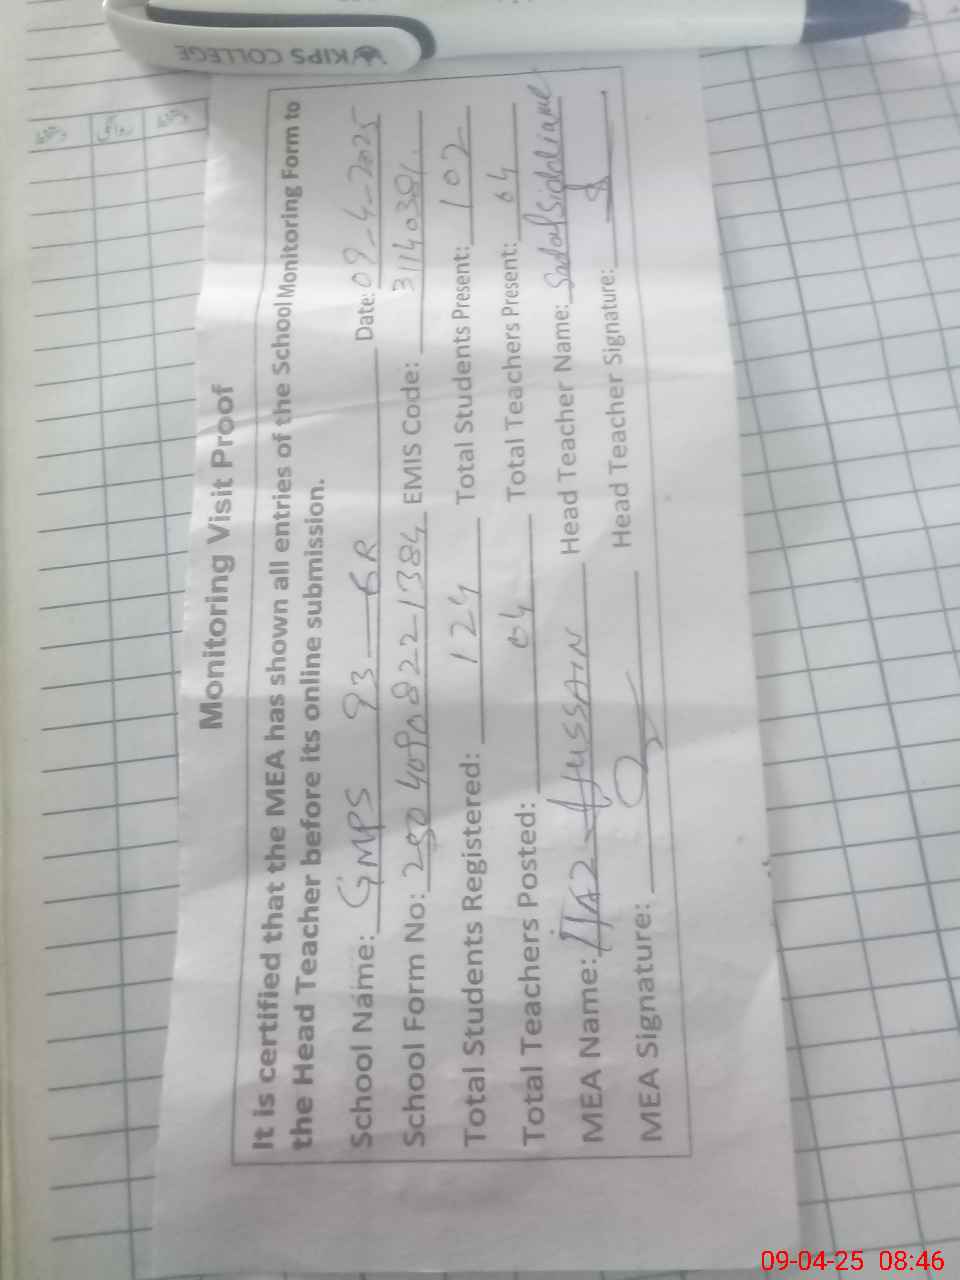 KIPS COLLEGE
Monitoring Visit Proof
It is certified that the MEA has shown all entries of the School Monitoring Form to
the Head Teacher before its online submission.
School Name: GMPS 93-6R Date: 09-4-2025
School Form No: 25040908221384 EMIS Code: 31140381
Total Students Registered: 124 Total Students Present: 102
Total Teachers Posted: 04 Total Teachers Present: 04
MEA Name: HUSSAIN Head Teacher Name:
MEA Signature: Head Teacher Signature:
09-04-25 08:46